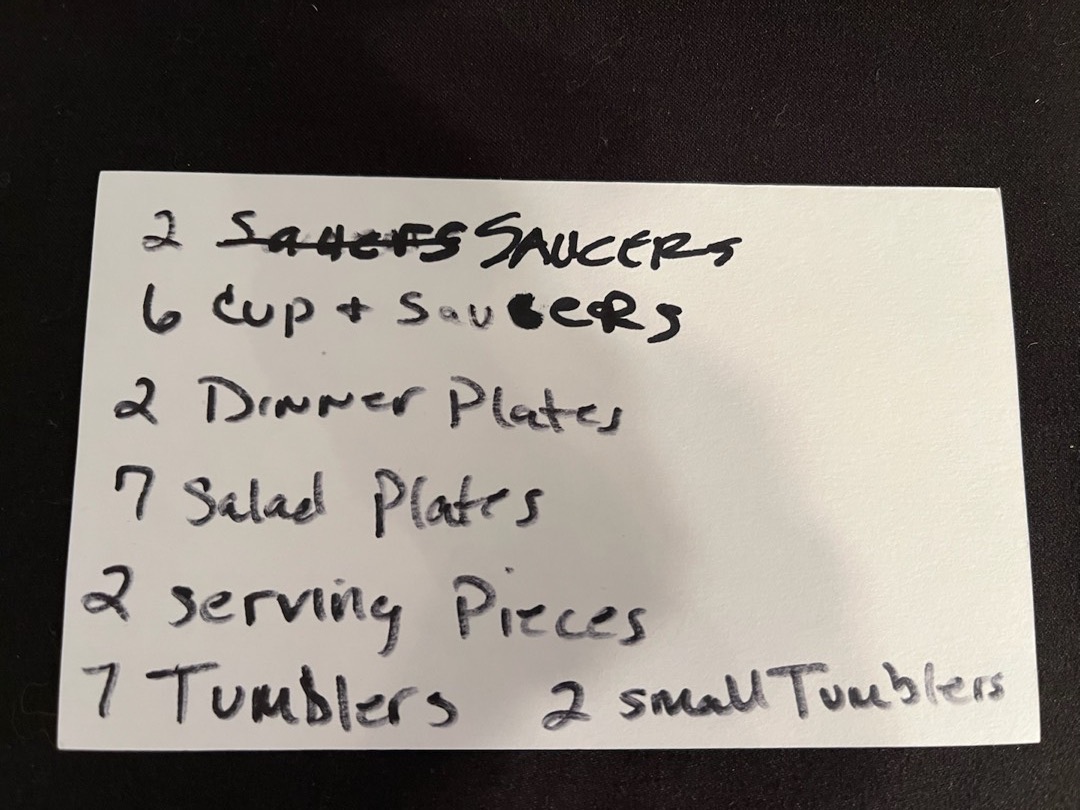 2 Sauers SAUCERS
6 Cup + SauceRs
2 Dinner Plates
7 Salad Plates
2 serving Pieces
7 Tumblers 2 small Tumblers